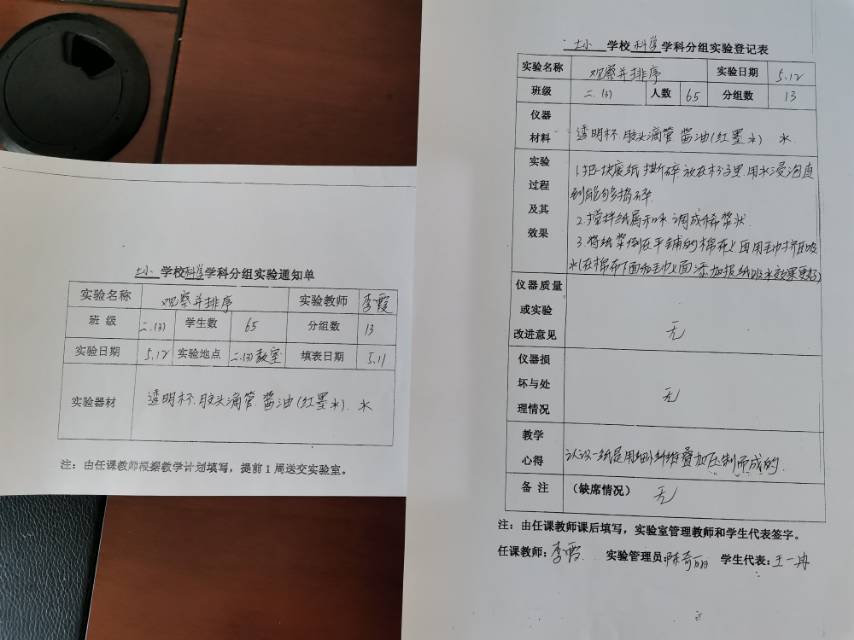 土小 学校科学学科分组实验通知单
实验名称 观察并排序 实验教师 李霞
班 级 二.(3) 学生数 65 分组数 13
实验日期 5.12 实验地点 二.(3)教室 填表日期 5.11
实验器材 透明杯.胶头滴管 酱油(红墨水). 水
注：由任课教师根据教学计划填写，提前1周送交实验室。
土小 学校科学学科分组实验登记表
实验名称 观察并排序 实验日期 5.12
班级 二.(3) 人数 65 分组数 13
仪器
材料 透明杯.胶头滴管 酱油(红墨水) 水
实验
过程
及其
效果
1.把一块废纸撕碎放在杯子里.用水浸泡直
到能够捣碎
2.搅拌纸 调成稀浆状.
3.将纸浆倒在平铺的棉布上面用毛巾
水(在棉布下面加毛巾上面添加报纸吸水效果更好)
仪器质量
或实验
改进意见 无
仪器损
坏与处
理情况 无
教学
心得 认识纸是用细小纤维叠加压制而成的.
备 注 （缺席情况） 无
注：由任课教师课后填写，实验室管理教师和学生代表签字。
任课教师：李霞 实验管理员：陈奇丽 学生代表：王一冉